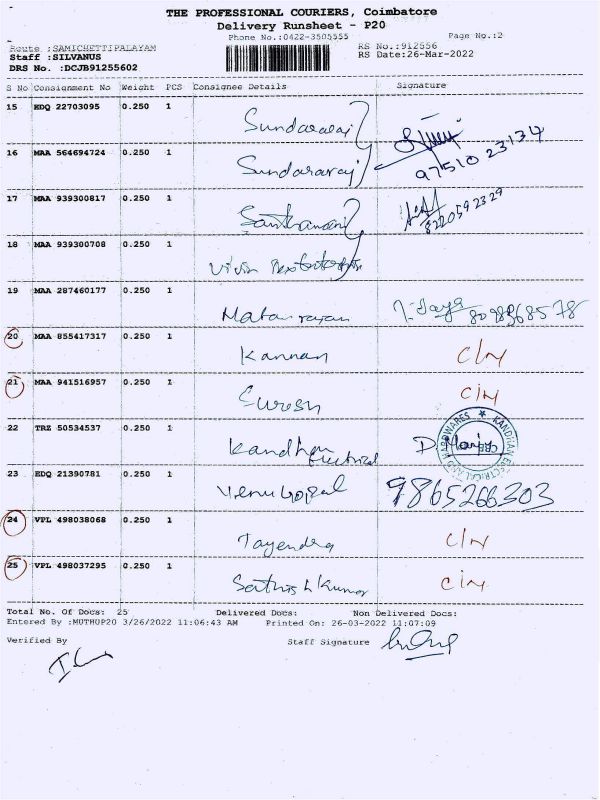 THE PROFESSIONAL COURIERS, Coimbatore
Delivery Runsheet - P20
Phone No.:0422-3505555
Page No.:2
Route :SAMICHETTIPALAYAM
RS No.:912556
Staff :SILVANUS
RS Date:26-Mar-2022
DRS No. :DCJB91255602
S No Consignment No Weight PCS Consignee Details Signature
15 EDQ 22703095 0.250 1 Sundararaj
16 MAA 564694724 0.250 1 Sundararaj 97510 23134
17 MAA 939300817 0.250 1 8220592329
18 MAA 939300708 0.250 1
19 MAA 287460177 0.250 1 J. Jaya
20 MAA 855417317 0.250 1 Kannan
21 MAA 941516957 0.250 1 Suresh
22 TRZ 50534537 0.250 1 Kandhan Electrical KANDHAN ELECTRICAL AND HARDWARES
23 EDQ 21390781 0.250 1 Venu Gopal 9865266303
24 VPL 498038068 0.250 1
25 VPL 498037295 0.250 1 Sathish Kumar
Total No. Of Docs: 25 Delivered Docs: Non Delivered Docs:
Entered By :MUTHUP20 3/26/2022 11:06:43 AM Printed On: 26-03-2022 11:07:09
Verified By Staff Signature